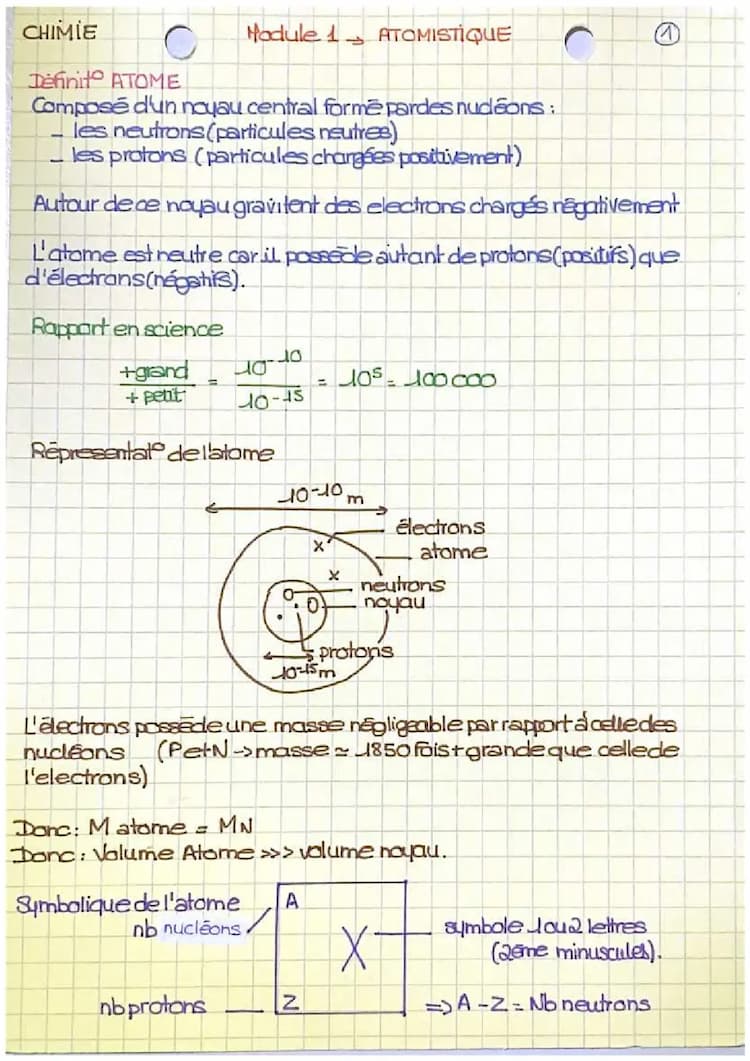 CHIMIE
Module 1 → ATOMISTIQUE
1
Définit° ATOME
Composé d'un noyau central formé par des nucléons :
- les neutrons (particules neutres)
- les protons (particules chargées positivement)
Autour de ce noyau gravitent des electrons chargés négativement
L'atome est neutre car il possède autant de protons (positifs) que
d'électrons (négatifs).
Rapport en science
+grand / + petit = 10^-10 / 10^-15 = 10^5 = 100 000
Réprésentat° de l'atome
10^-10 m
électrons
atome
neutrons
noyau
protons
10^-15 m
L'électrons possède une masse négligeable par rapport à celle des
nucléons (P et N → masse ≃ 1850 fois + grande que celle de
l'electrons)
Donc : M atome = MN
Donc : Volume Atome >>> volume noyau.
Symbolique de l'atome
nb nucléons
A
X
symbole 1 ou 2 lettres
(2ème minuscules).
nb protons
Z
=> A - Z = Nb neutrons